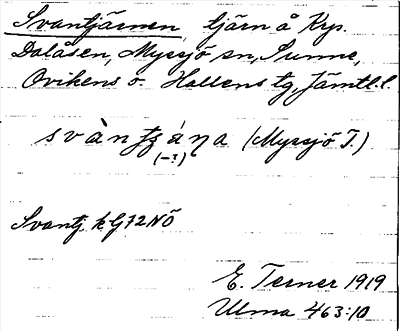 Svantjärnen, tjärn å Krp.
Dalåsen, Myssjö sn, Sunne,
Ovikens o. Hallens tg, Jämtl. l.
(Myssjö T.)
(-?)
Svantj kG72NÖ
E. Terner 1919
Ulma 463:10